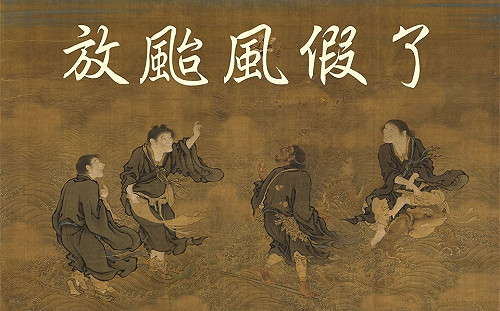 放颱風假了